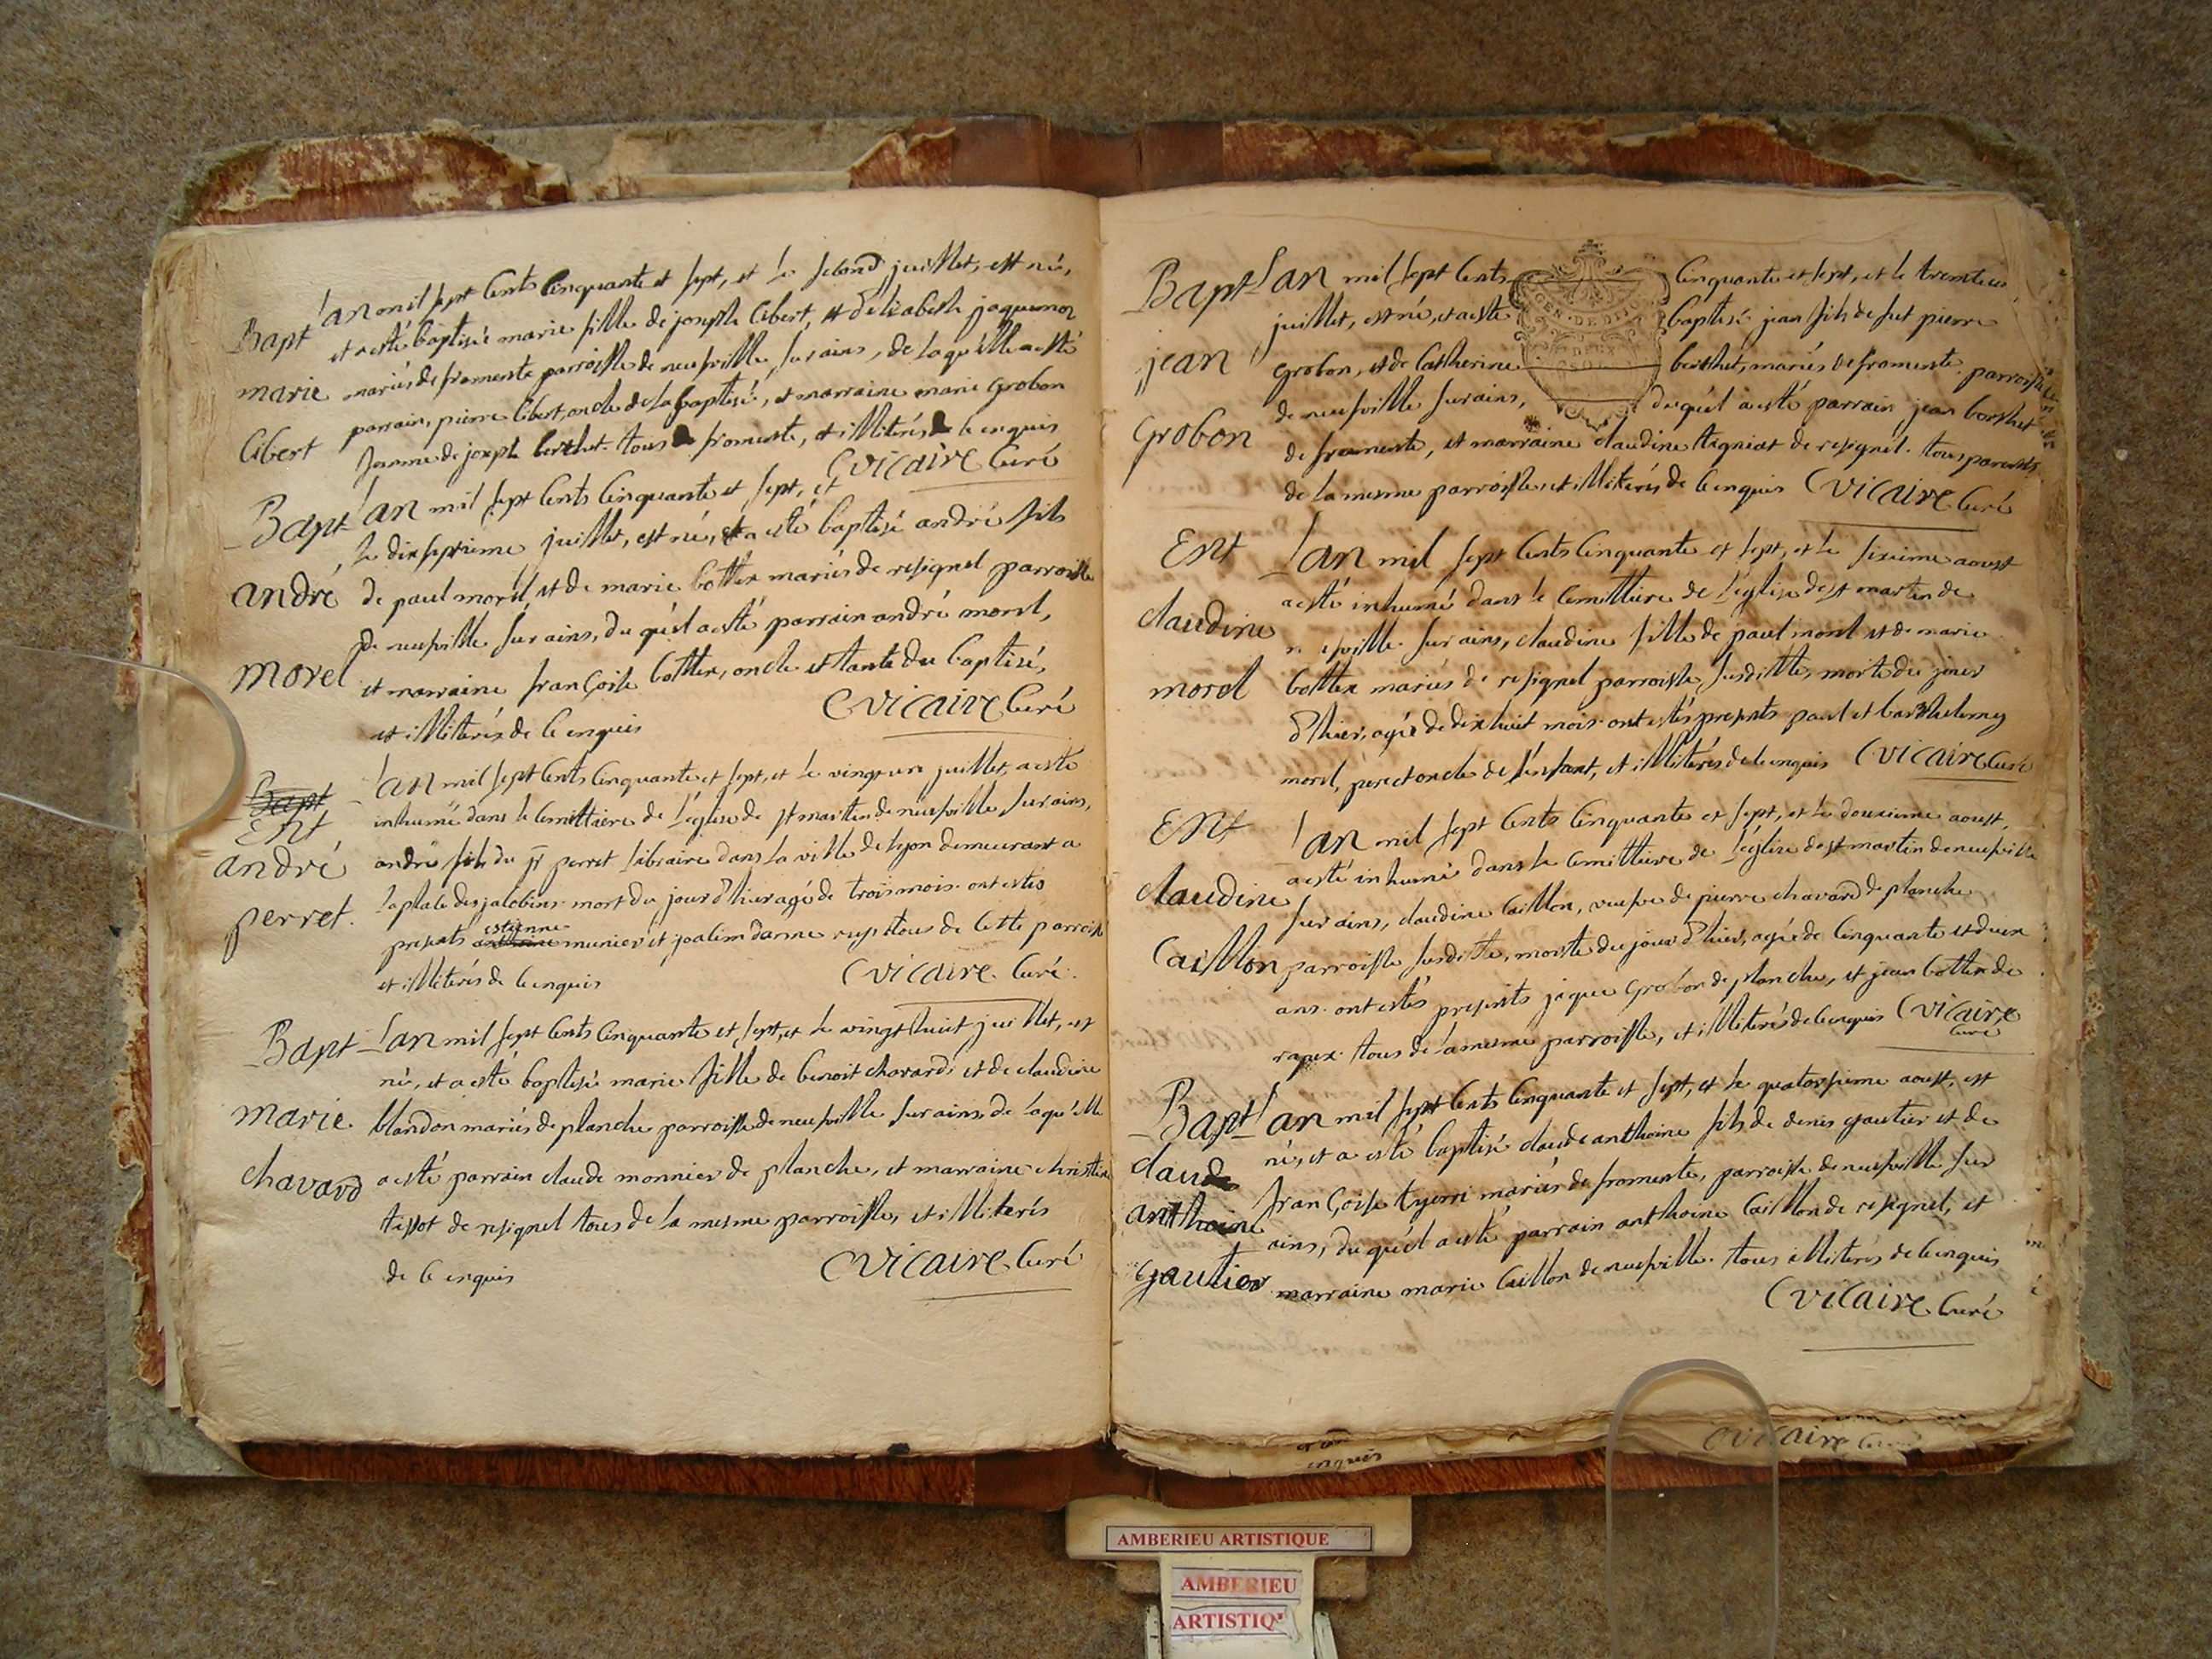 Bapt
marie
Cibert
l'an mil sept cents cinquante et sept, et le second juillet, est né,
et a esté baptisée marie fille de joseph Cibert, et d'elisabeth jaquemoz
mariés de fromente parroisse de neufville sur ains, de laqu'elle a esté
parrain, pierre Cibert, oncle de la baptisée, et marraine marie grobon
femme de joseph berthet. tous de fromente, et illiterés de ce enquis
Cvicaire Curé
Bapt
andré
morel
l'an mil sept cents cinquante et sept, et
le dixseptieme juillet, est né, et a esté baptisé andré fils
de paul morel, et de marie bottex mariés de resignel parroisse
de neufville sur ains, du qu'el a esté parrain andré morel,
et marraine françoise bottex, oncle et tante du baptisé,
et illiterés de ce enquis
Cvicaire Curé
Bapt
Ent
andré
perret.
l'an mil sept cents cinquante et sept, et le vingt un juillet, a esté
inhumé dans le cemittiere de l'église de st martin de neufville sur ains,
andré fils du sr perret libraire dans la ville de lyon demeurant a
la place des jacobins. mort du jour d'hier agé de trois mois. ont estés
presents estienne munier et joachim danne tous de cette parroisse
et illiterés de ce enquis
Cvicaire Curé.
Bapt
marie.
chavard
l'an mil sept cents cinquante et sept, et le vingt huit juillet, est
né, et a esté baptisé marie fille de benoit chavard, et de claudine
blandon mariés de planche parroisse de neufville sur ains, de laqu'elle
a esté parrain claude monnier de planche, et marraine christine
tissot de resignel tous de la mesme parroisse, et illiterés
de ce enquis
Cvicaire Curé
Bapt
jean
grobon
l'an mil sept cents cinquante et sept, et le trente un
juillet, est né, et a esté baptisé jean fils de fut pierre
grobon, et de catherine berthet, mariés de fromente parroisse
de neufville sur ains, du qu'el a esté parrain jean berthet
de fromente, et marraine claudine tigniat de resignel. tous parents
de la mesme parroisse, et illiterés de ce enquis Cvicaire Curé
Ent
claudine
morel
l'an mil sept cents cinquante et sept, et le sixieme aoust
a esté inhumé dans le cemittiere de l'église de st martin de
neufville sur ains, claudine fille de paul morel et de marie
bottex mariés de resignel parroisse susditte, morte du jour
d'hier, agée de dix huit mois. ont estés presents paul et barthelemy
morel, pere et oncle de l'enfant, et illiterés de ce enquis Cvicaire Curé
Ent
claudine
Caillon
l'an mil sept cents cinquante et sept, et le douzieme aoust,
a esté inhumé dans le cemittiere de l'église de st martin de neufville
sur ains, claudine Caillon, veufve de pierre chavard de planche
parroisse susditte, morte du jour d'hier, agée de cinquante et deux
ans. ont estés presents jaque grobon de planche, et jean bottex de
rapex. tous de la mesme parroisse, et illiterés de ce enquis Cvicaire
Curé
Bapt
claude
anthoine
gautier
l'an mil sept cents cinquante et sept, et le quatorsieme aoust, est
né, et a esté baptisé claude anthoine fils de denis gautier et de
françoise tyerri mariés de fromente, parroisse de neufville sur
ains, du qu'el a esté parrain anthoine Caillon de resignel, et
marraine marie Caillon de neufville. tous illiterés de ce enquis
Cvicaire Curé
enquis
Cvicaire
AMBERIEU ARTISTIQUE
AMBERIEU
ARTISTIQ